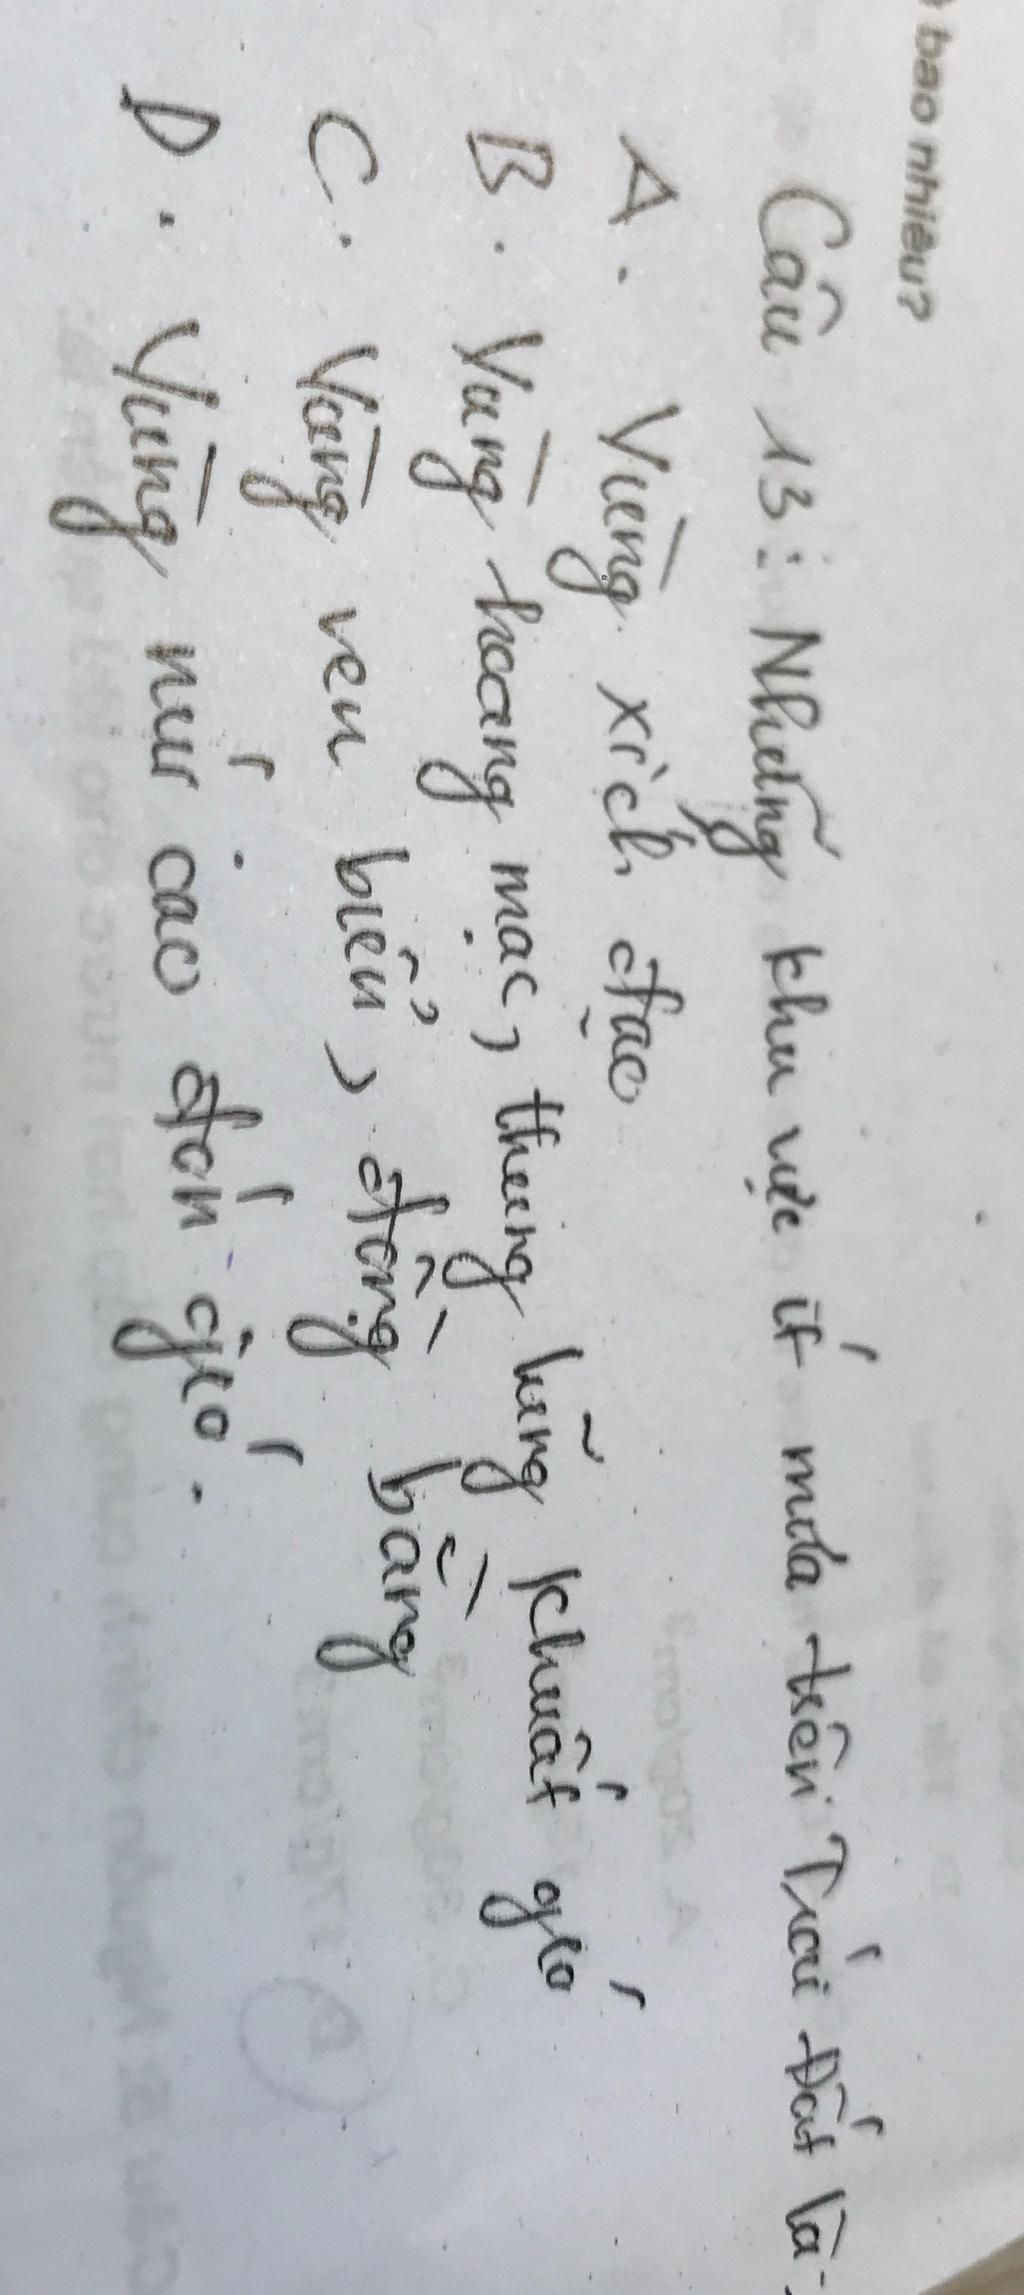 bao nhiêu?
Câu 13: Những khu vực ít mưa trên Trái Đất là:
A. Vùng xích đạo
B. Vùng hoang mạc, thung lũng khuất gió
C. Vùng ven biển, đồng bằng
D. Vùng núi cao đón gió.